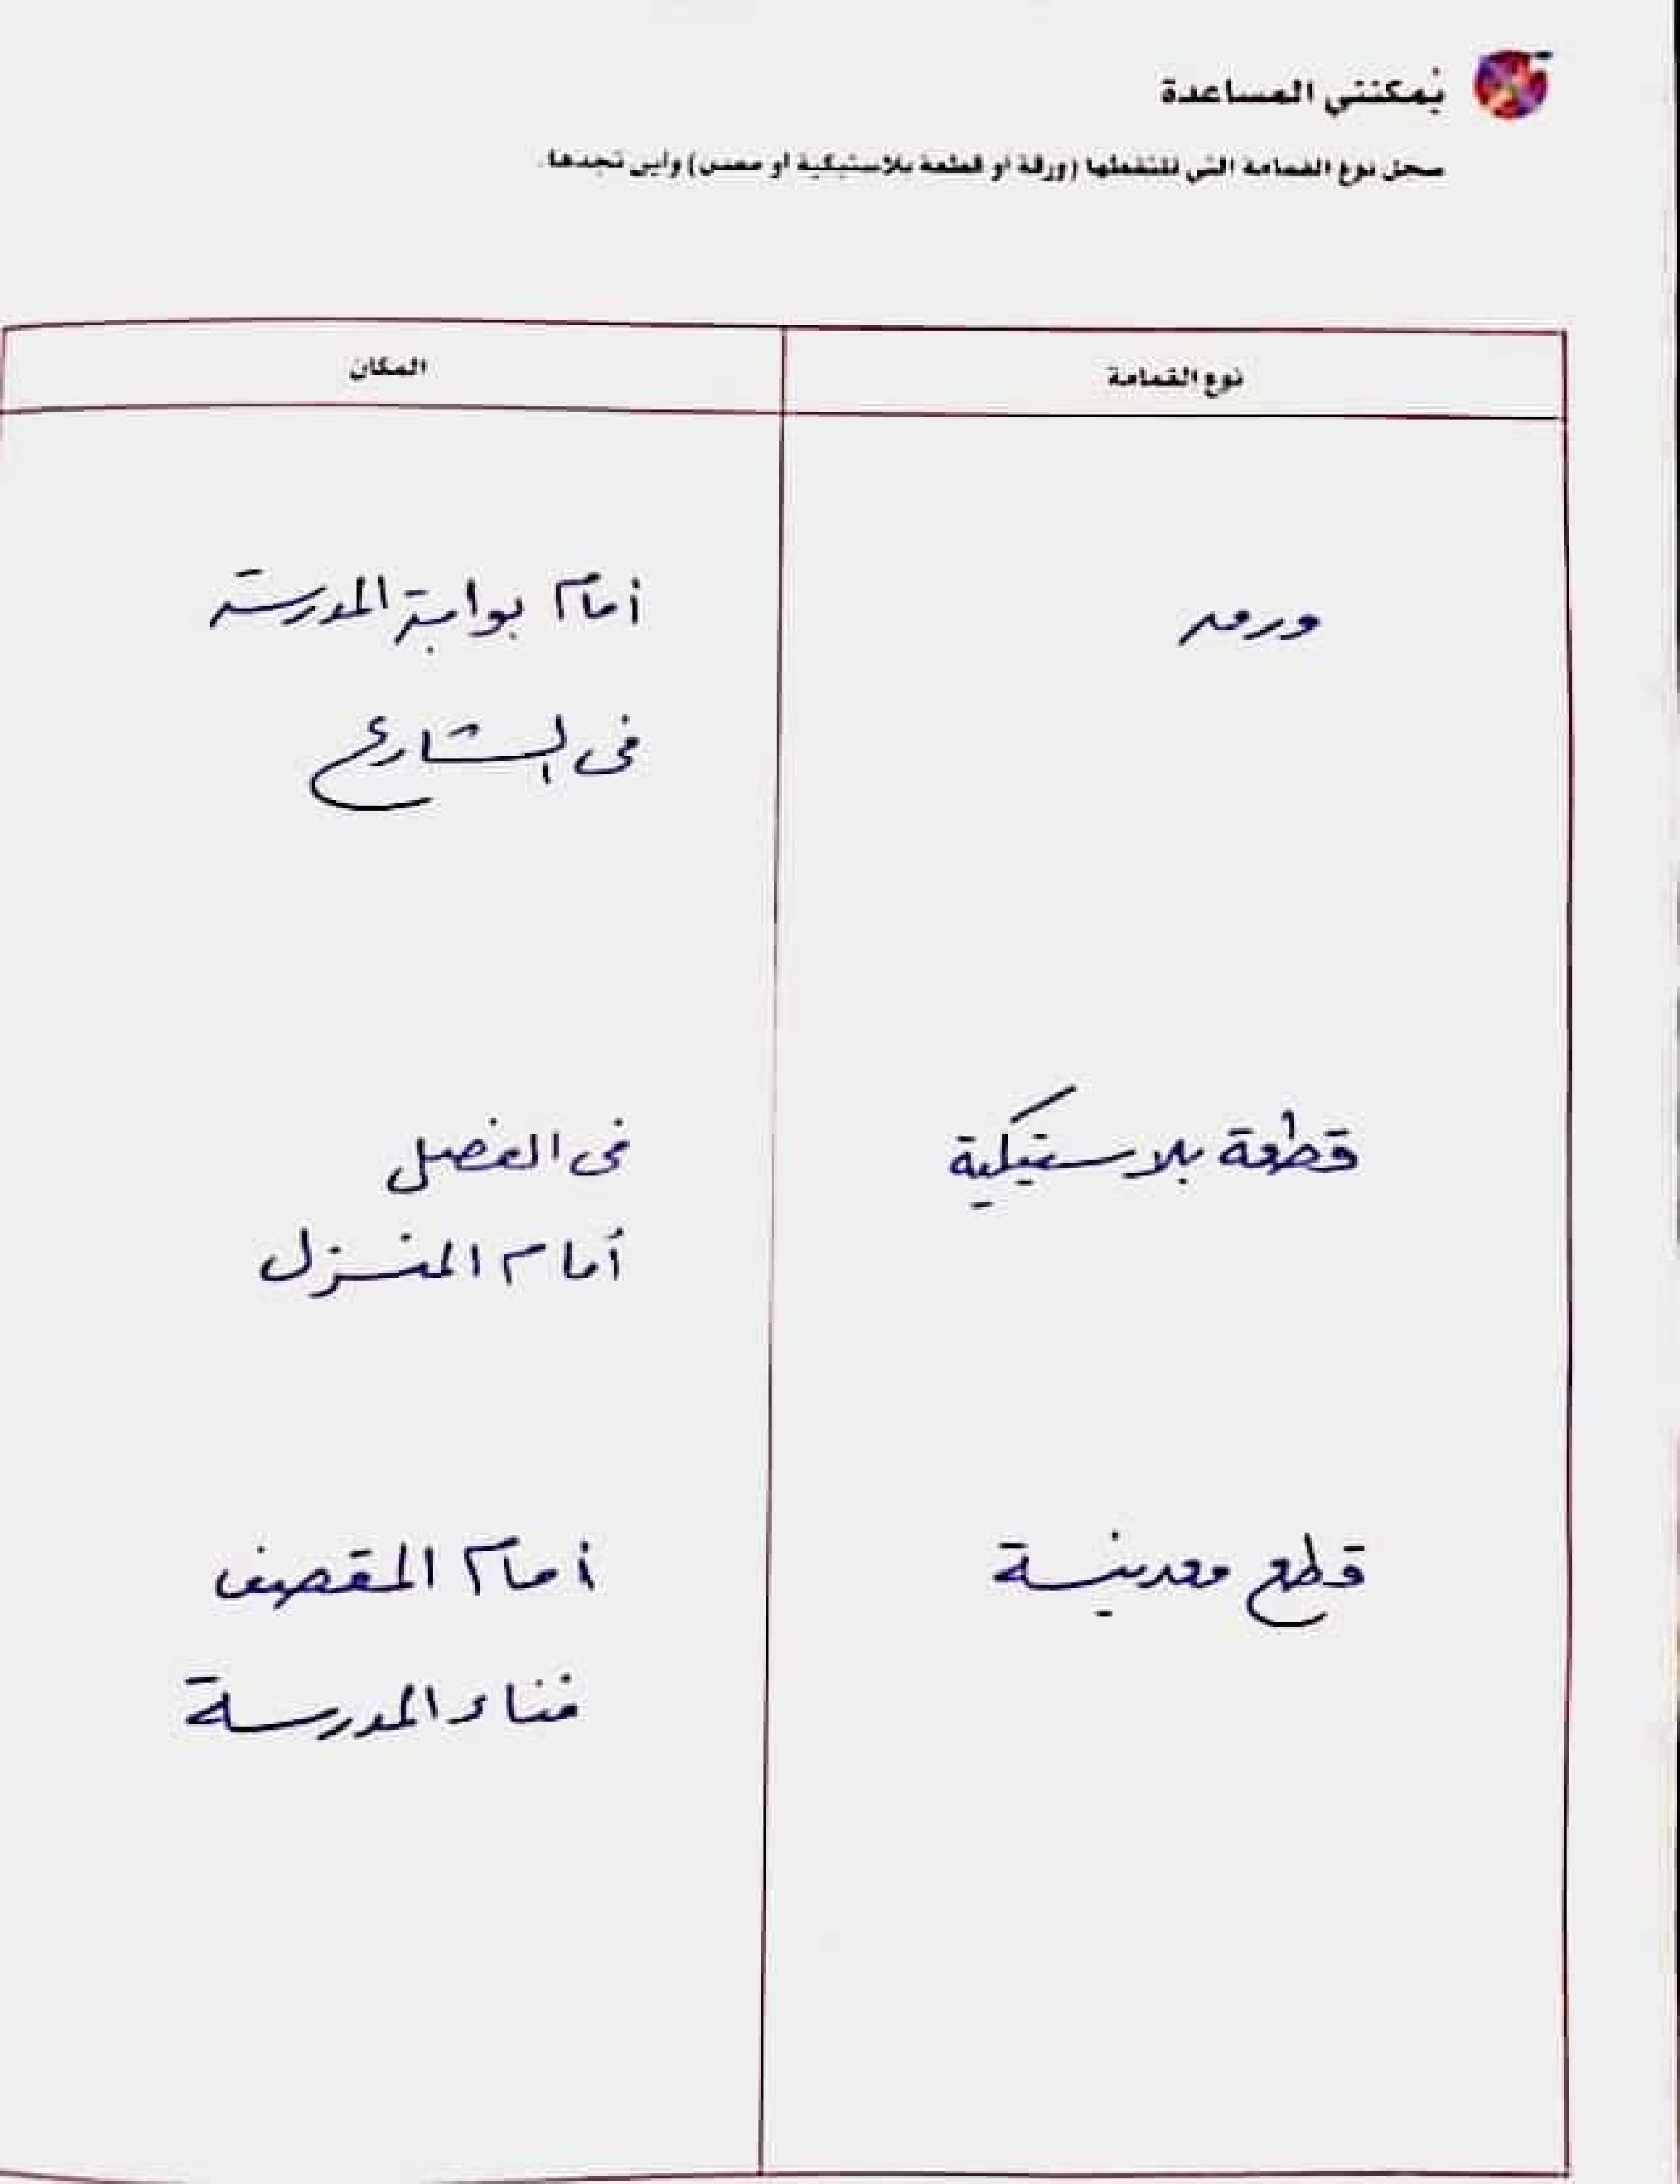 يُمكنني المساعدة
سجل نوع القمامة التي تلتقطها (ورقة أو قطعة بلاستيكية أو معدن) وأين تجدها.
نوع القمامة
المكان
ورق
أمام بوابة المدرسة
فى الشارع
قطعة بلاستيكية
فى الفصل
أمام المنزل
قطع معدنية
أمام المقصف
فناء المدرسة